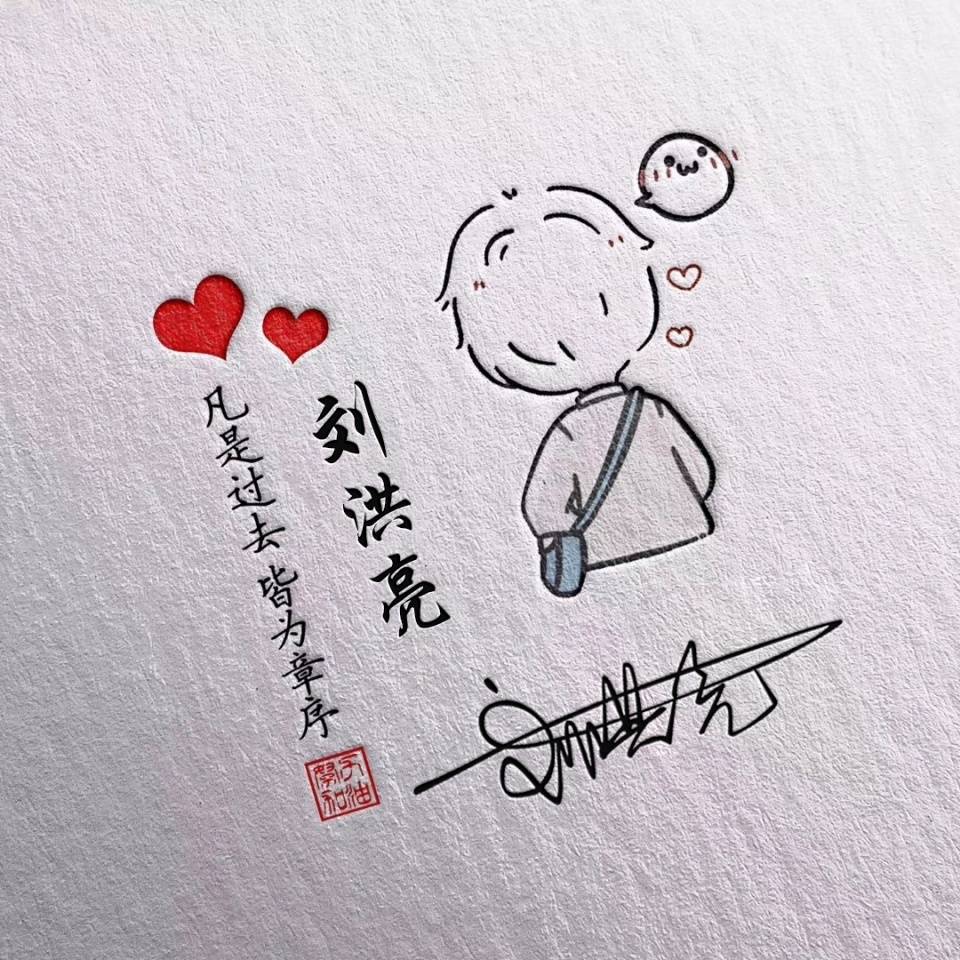 刘洪亮
凡是过去 皆为章序
刘洪亮